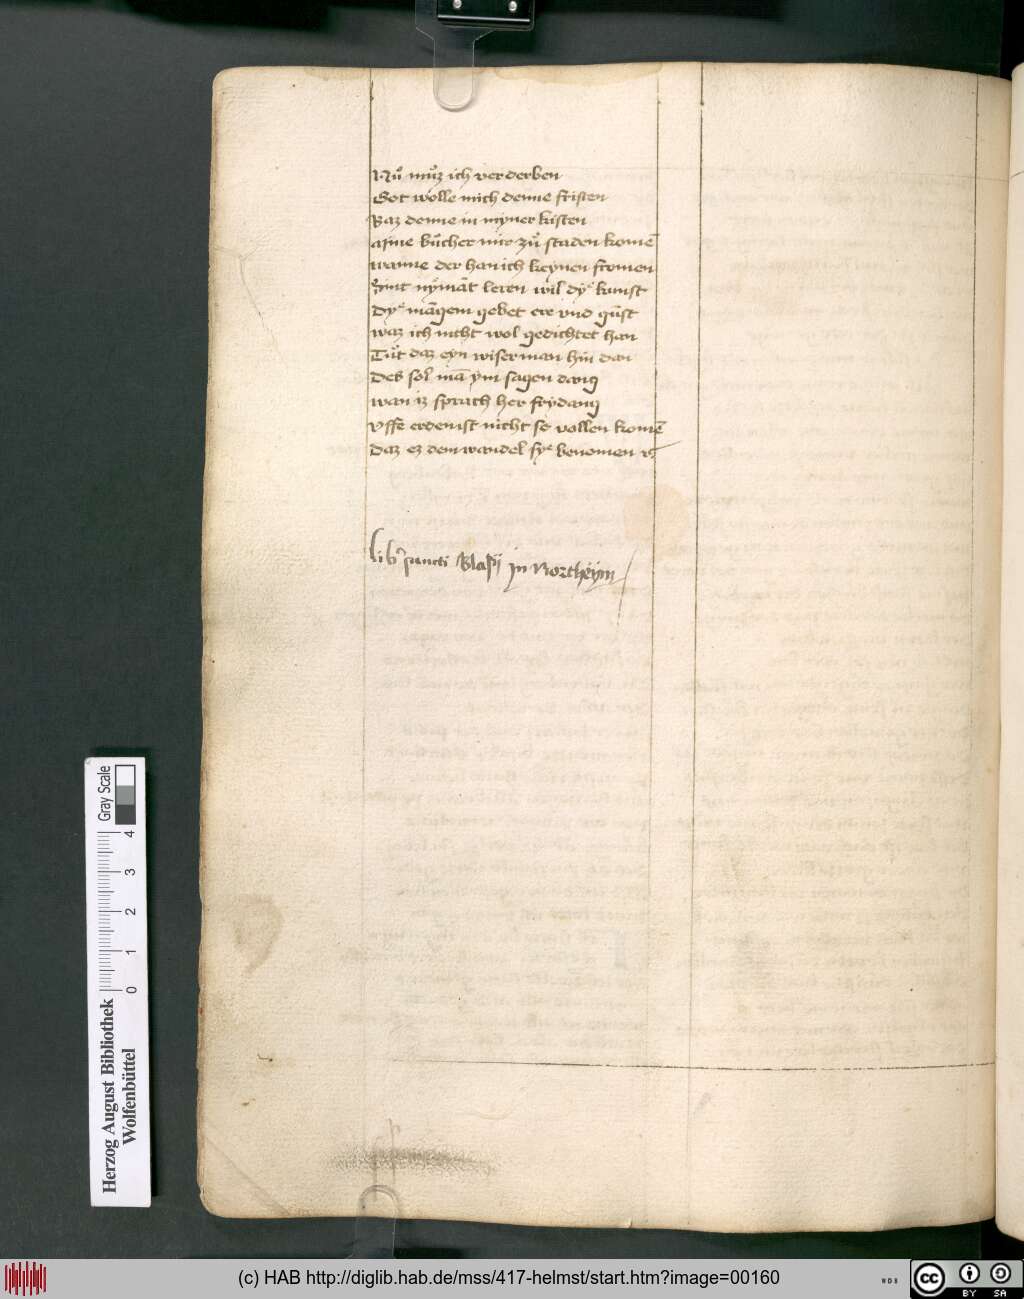 Nuͦ muͦz ich verderben
Got wolle mich denne fristen
Baz denne in myner kisten
Myne buͤcher mir zuͦ staden komē
wanne der han ich keynen fromen
Sint nymāt leren wil dyͤ kunst
Dyͤ māgem gebet ere vnd gūst
waz ich nicht wol gedichtet han
Tuͦt daz eyn wiser man hin dan
Des sol mā ym sagen dang
wan iz sprach her frydang
Vffe erden ist nicht so vollen komē
Daz ez dem wandel syͤ benomen
lib' sancti Blasij in Northeym
Gray Scale
0 1 2 3 4
Herzog August Bibliothek
Wolfenbüttel
(c) HAB http://diglib.hab.de/mss/417-helmst/start.htm?image=00160
WDB
cc
BY SA